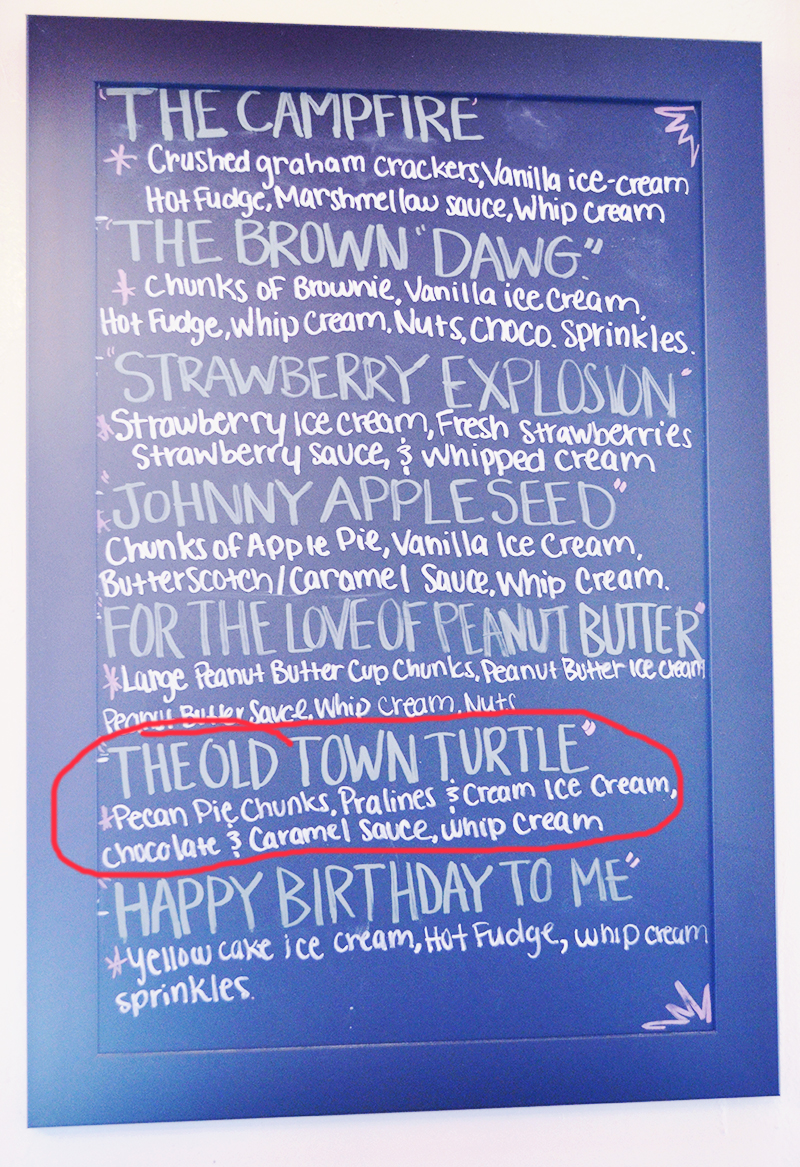 "THE CAMPFIRE"
* Crushed graham crackers, Vanilla ice-cream
Hot Fudge, Marshmellow sauce, Whip cream
"THE BROWN "DAWG"
* Chunks of Brownie, Vanilla ice cream,
Hot Fudge, Whip Cream. Nuts, Choco. Sprinkles.
"STRAWBERRY EXPLOSION"
* Strawberry Ice cream, Fresh Strawberries
Strawberry sauce, & Whipped cream
"JOHNNY APPLESEED"
* Chunks of Apple Pie, Vanilla Ice Cream,
ButterScotch/Caramel Sauce, Whip Cream.
"FOR THE LOVE OF PEANUT BUTTER"
* Large Peanut Butter Cup Chunks, Peanut Butter Ice cream
Peanut Butter Sauce, Whip Cream. Nuts
"THE OLD TOWN TURTLE"
* Pecan Pie Chunks, Pralines & Cream Ice Cream,
Chocolate & Caramel Sauce, Whip Cream
"HAPPY BIRTHDAY TO ME"
* Yellow cake ice cream, Hot Fudge, whip cream
sprinkles.